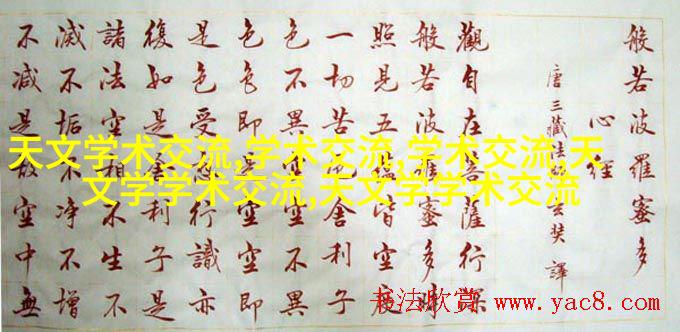 般若波羅蜜多
心經
唐三藏法師玄奘譯
觀自在菩薩行深
般若波羅蜜多時
照見五蘊皆空度
一切苦厄舍利子
色不異空空不異
色色即是空空即
是色受想行識亦
復如是舍利子是
諸法空相不生不
滅不垢不净不增
不減是故空中無
天文学术交流,学术交流,学术交流,天
文学学术交流,天文学学术交流
书法欣赏 www.yac8.com